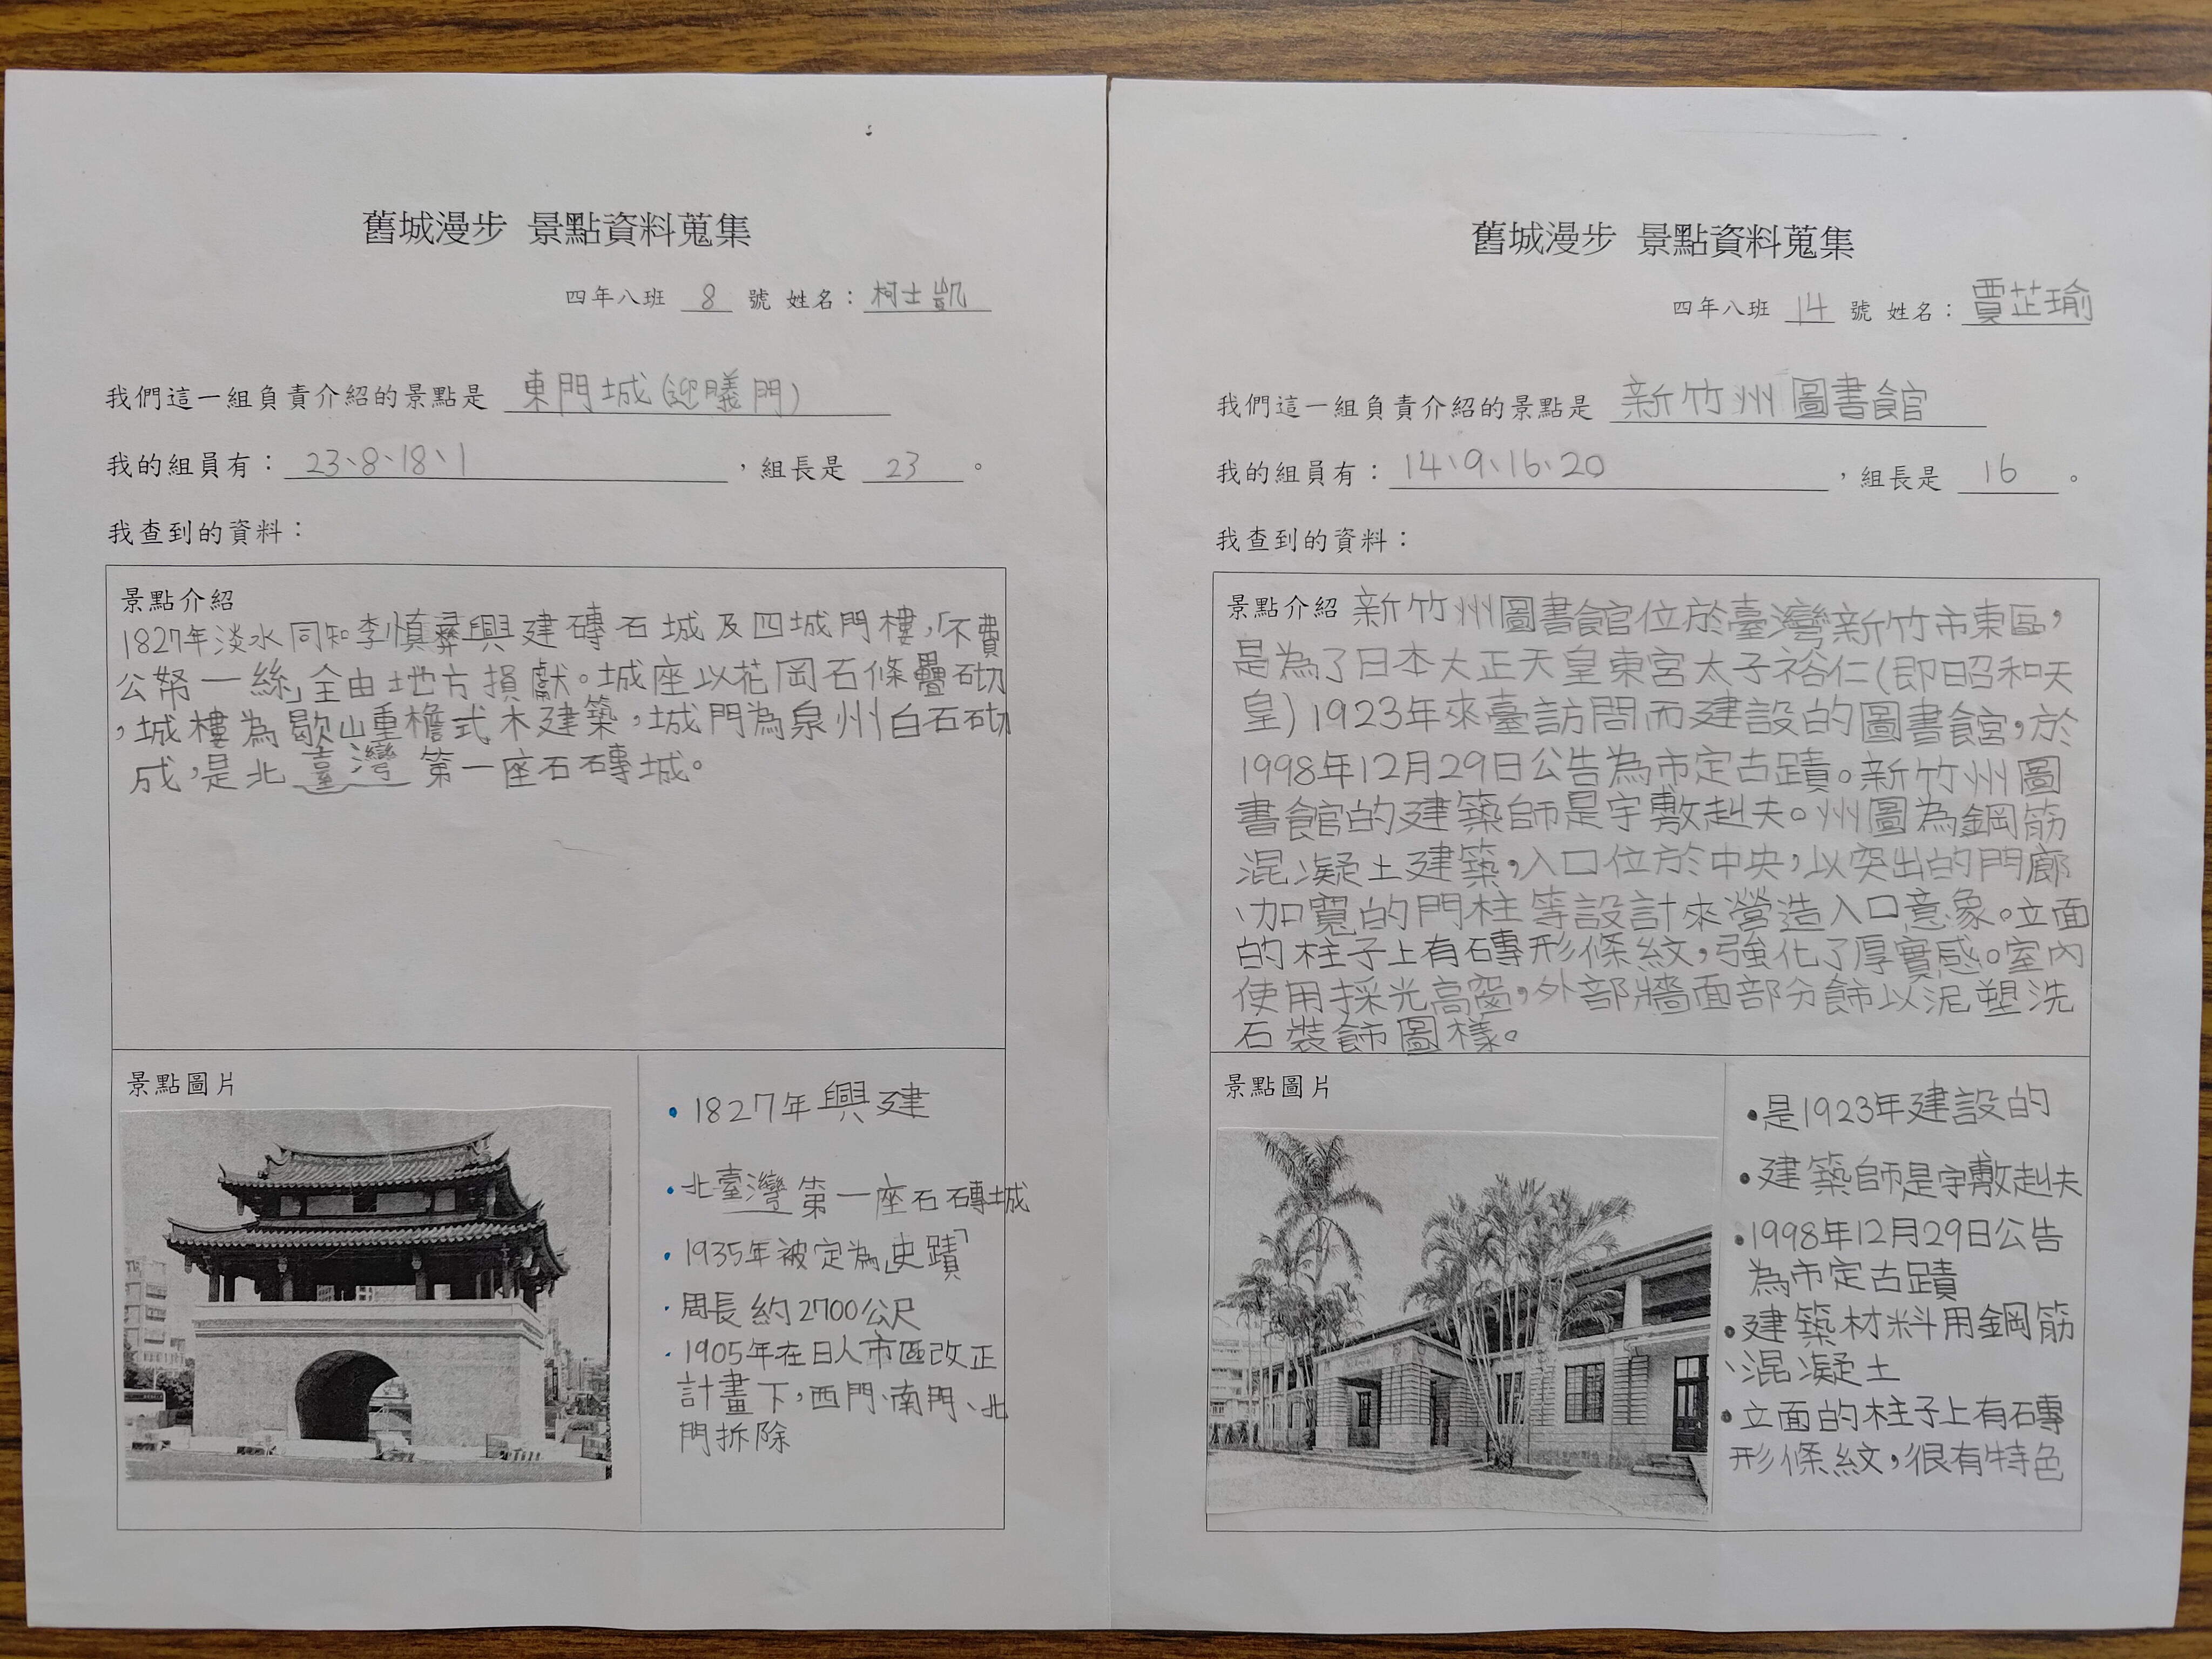 舊城漫步 景點資料蒐集
四年八班 8 號 姓名：柯士凱
我們這一組負責介紹的景點是 東門城(迎曦門)
我的組員有：23、8、18、1，組長是 23。
我查到的資料：
景點介紹
1827年淡水同知李慎彝興建磚石城及四城門樓，「不費
公帑一絲」全由地方損獻。城座以花岡石條疊砌
，城樓為歇山重檐式木建築，城門為泉州白石砌
成，是北臺灣第一座石磚城。
景點圖片
•1827年興建
•北臺灣第一座石磚城
•1935年被定為「史蹟」
•周長約2700公尺
•1905年在日人市區改正
計畫下，西門、南門、北
門拆除
舊城漫步 景點資料蒐集
四年八班 14 號 姓名：賈芷瑜
我們這一組負責介紹的景點是 新竹州圖書館
我的組員有：14、9、16、20，組長是 16。
我查到的資料：
景點介紹 新竹州圖書館位於臺灣新竹市東區，
是為了日本大正天皇東宮太子裕仁(即昭和天
皇)1923年來臺訪問而建設的圖書館，於
1998年12月29日公告為市定古蹟。新竹州圖
書館的建築師是宇敷赳夫。州圖為鋼筋
混凝土建築，入口位於中央，以突出的門廊
、加寬的門柱等設計來營造入口意象。立面
的柱子上有磚形條紋，強化了厚實感。室內
使用採光高窗，外部牆面部分飾以泥塑洗
石裝飾圖樣。
景點圖片
•是1923年建設的
•建築師是宇敷赳夫
•1998年12月29日公告
為市定古蹟
•建築材料用鋼筋
、混凝土
•立面的柱子上有磚
形條紋，很有特色